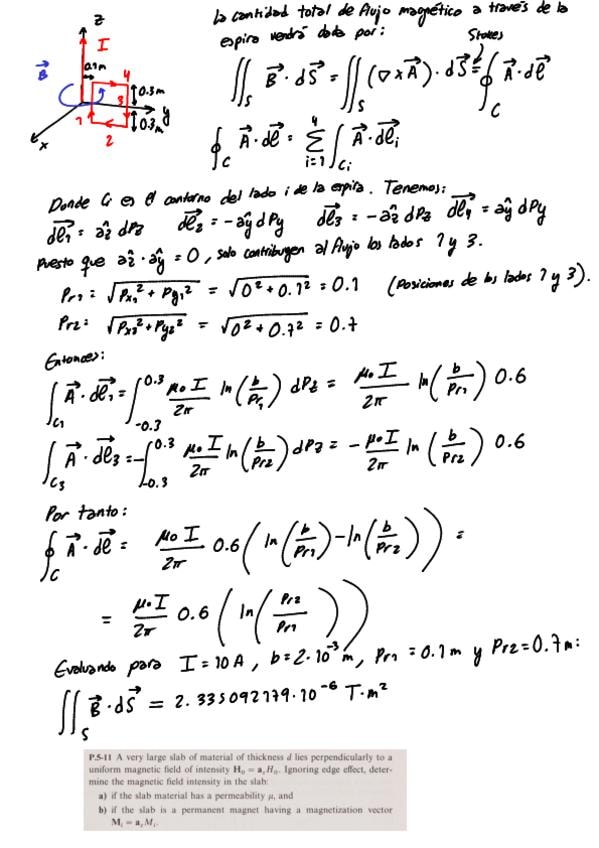 La cantidad total de flujo magnético a través de la
espira vendrá dada por:
z
I
0.1m
B⃗
4
3
1
2
0.3m
0.3m
y
x
Stokes
∬_S B⃗ · dS⃗ = ∬_S (∇×A⃗) · dS⃗ = ∮_C A⃗ · dl⃗
∮_C A⃗ · dl⃗ = Σ_{i=1}^{4} ∫_{Ci} A⃗ · dl⃗i
Donde Ci es el contorno del lado i de la espira. Tenemos:
dl⃗1 = aẑ dPz dl⃗2 = -aŷ dPy dl⃗3 = -aẑ dPz dl⃗4 = aŷ dPy
Puesto que aẑ · aŷ = 0, solo contribuyen al flujo los lados 1 y 3.
Pr1 = √(Px1² + Py1²) = √(0² + 0.1²) = 0.1 (Posiciones de los lados 1 y 3).
Pr2 = √(Px2² + Py2²) = √(0² + 0.7²) = 0.7
Entonces:
∫_{C1} A⃗ · dl⃗1 = ∫_{-0.3}^{0.3} μ0 I/2π ln(b/Pr1) dPz = μ0 I/2π ln(b/Pr1) 0.6
∫_{C3} A⃗ · dl⃗3 = -∫_{-0.3}^{0.3} μ0 I/2π ln(b/Pr2) dPz = - μ0 I/2π ln(b/Pr2) 0.6
Por tanto:
∮_C A⃗ · dl⃗ = μ0 I/2π 0.6 (ln(b/Pr1) - ln(b/Pr2)) =
= μ0 I/2π 0.6 (ln(Pr2/Pr1))
Evaluando para I = 10 A, b = 2·10⁻³ m, Pr1 = 0.1 m y Pr2 = 0.7 m:
∬_S B⃗ · dS⃗ = 2.335092179·10⁻⁶ T·m²
P.5-11 A very large slab of material of thickness d lies perpendicularly to a
uniform magnetic field of intensity H₀ = a_z H₀. Ignoring edge effect, deter-
mine the magnetic field intensity in the slab:
a) if the slab material has a permeability μ, and
b) if the slab is a permanent magnet having a magnetization vector
M_i = a_z M_i.